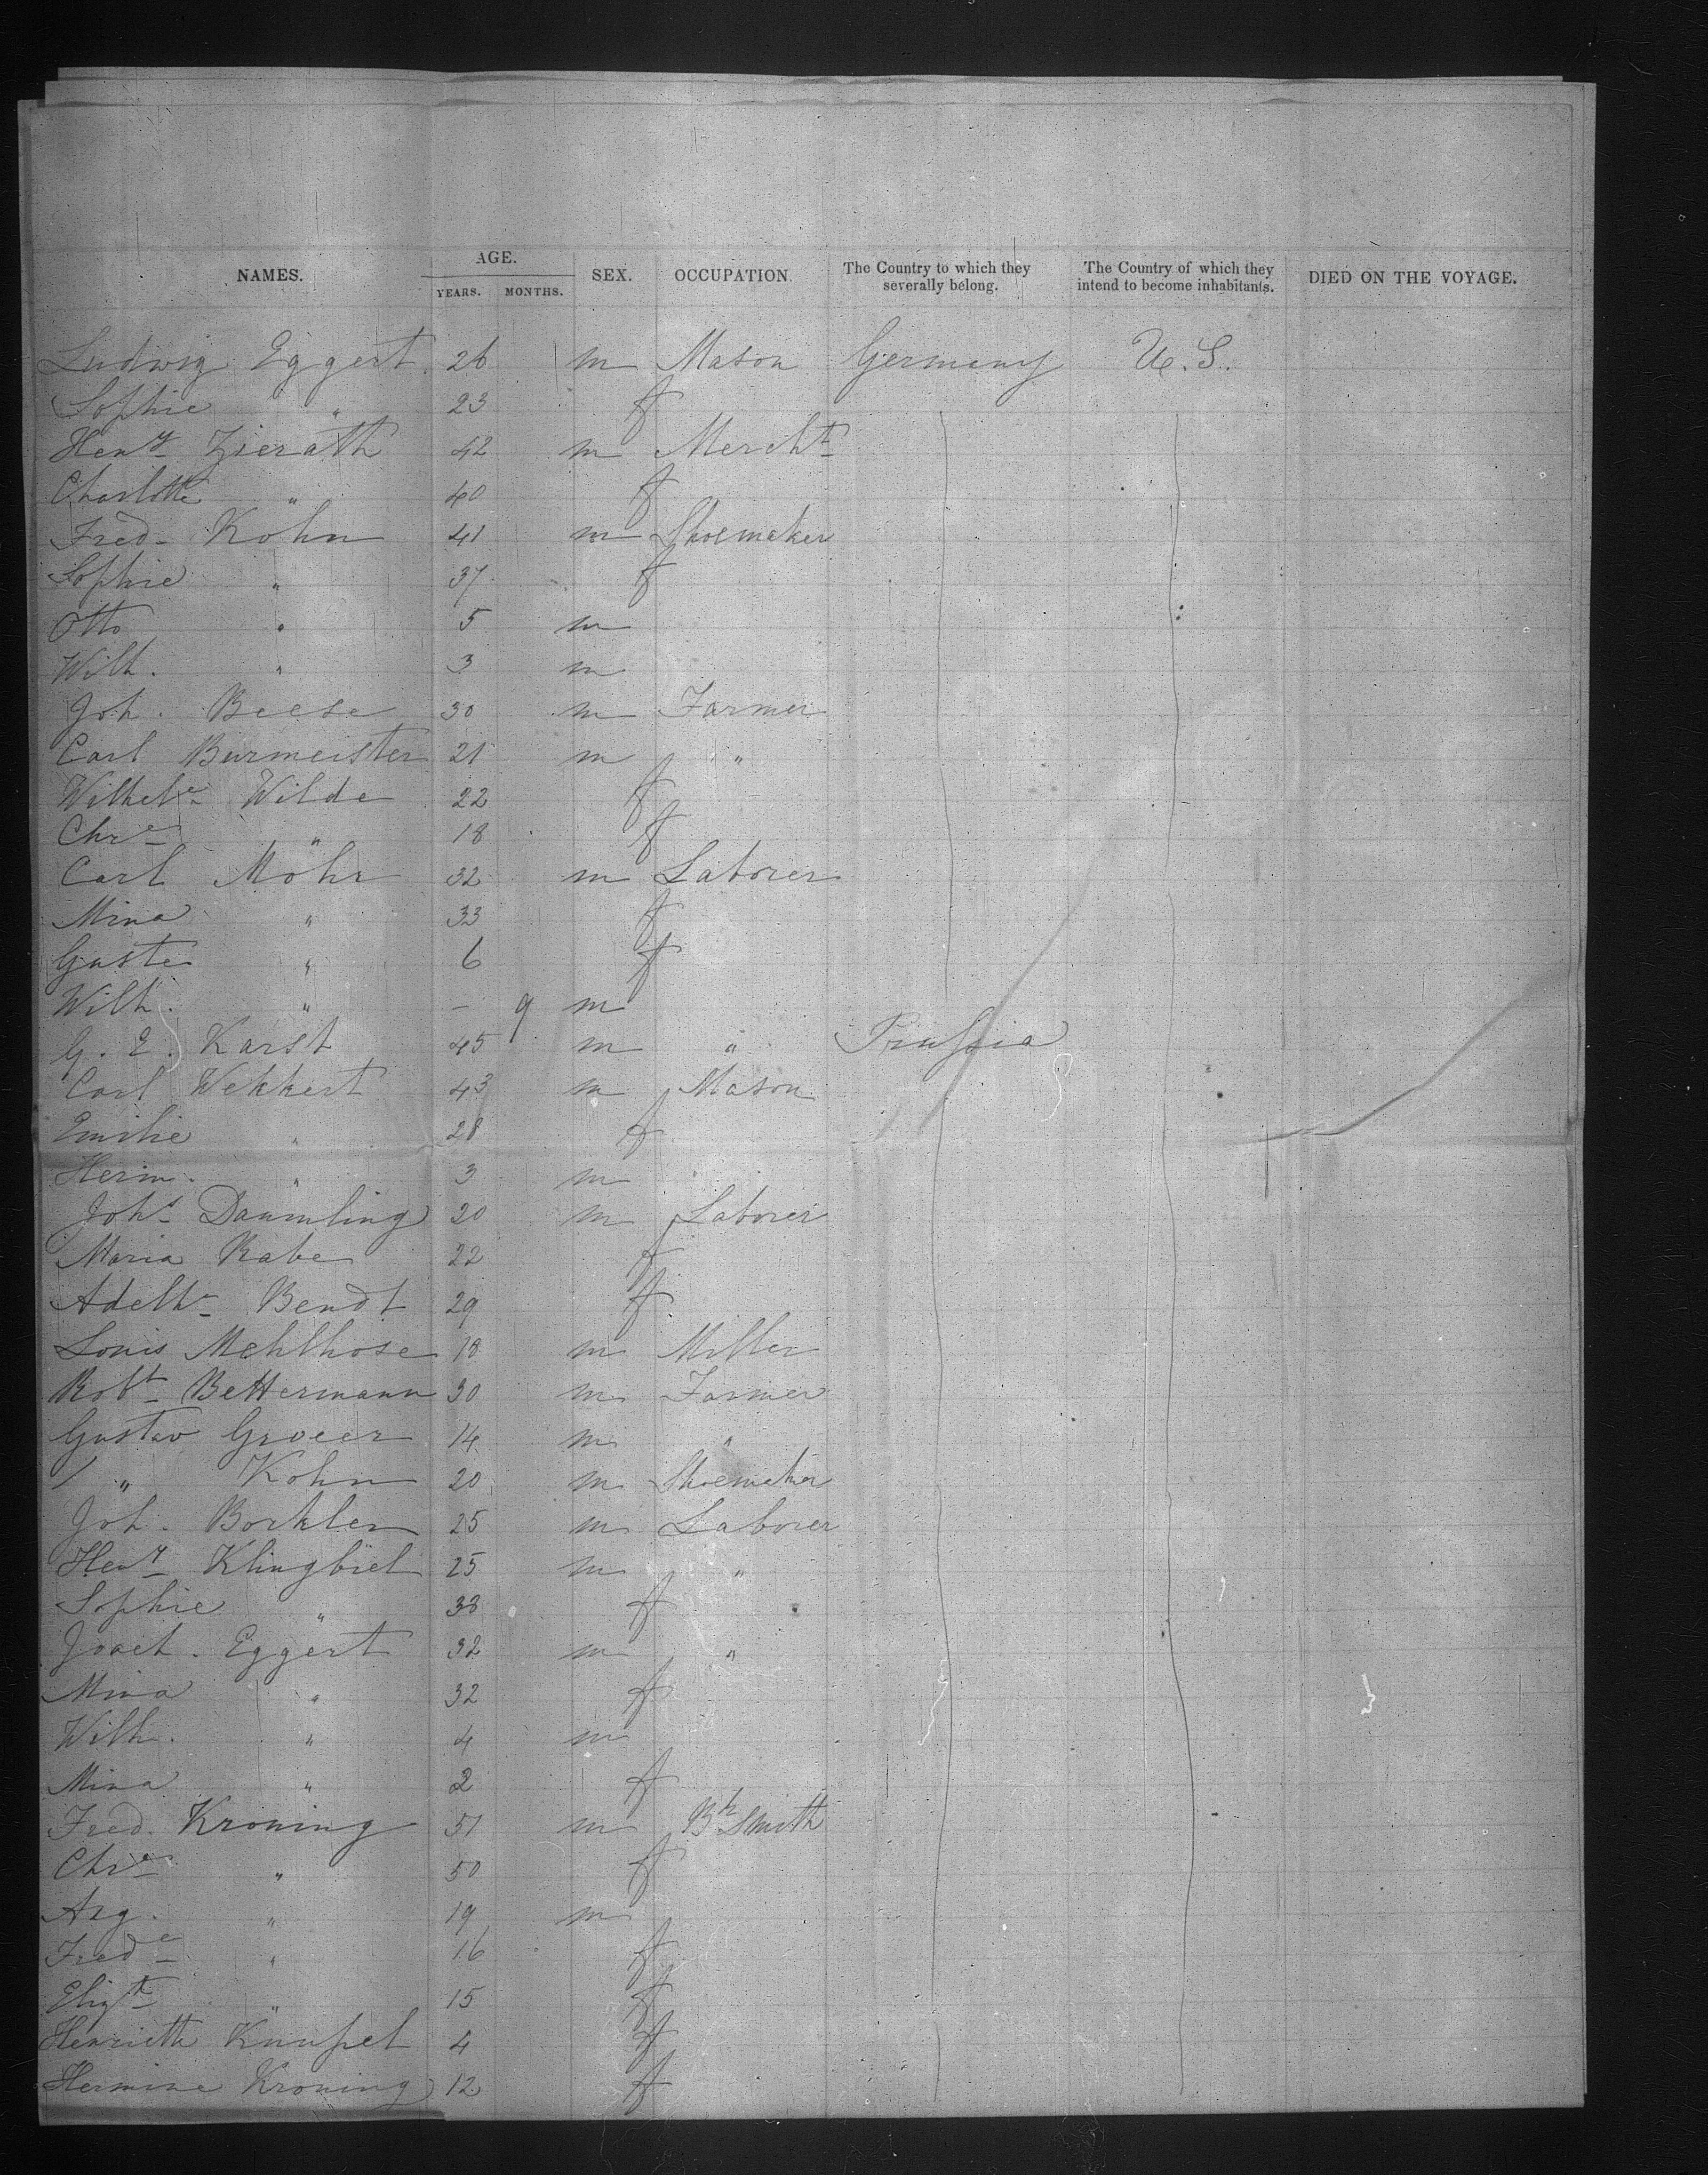 NAMES. AGE. YEARS. MONTHS. SEX. OCCUPATION. The Country to which they severally belong. The Country of which they intend to become inhabitants. DIED ON THE VOYAGE.
Ludwig Eggert 26 m Mason Germany U.S.
Sophie " 23 f
Heny Zierath 42 m Mercht
Charlotte " 40 f
Fred Kohn 41 m Shoemaker
Sophie " 37 f
Otto " 5 m
Wilh. " 3 m
Joh. Beese 30 m Farmer
Carl Burmeister 21 m "
Wilhele Wilde 22 f
Chre " 18 f
Carl Mohr 32 m Laborer
Mina " 33 f
Guste " 6 f
Wilh. " - 9 m
G. E. Karst 45 m " Prussia
Carl Wekkert 43 m Mason
Emilie " 28 f
Herm. " 3 m
Johs Daumling 20 m Laborer
Maria Rabe 22 f
Adelhe Bendt 29 f
Louis Mehlhose 18 m Miller
Robt Bettermann 30 m Farmer
Gustav Groeer 14 m "
" Kohn 20 m Shoemaker
Joh. Borkler 25 m Laborer
Heny Klingbiel 25 m "
Sophie " 33 f
Joach. Eggert 32 m "
Mina " 32 f
Wilh. " 4 m
Mina " 2 f
Fred. Kroning 51 m Bk Smith
Chre " 50 f
Aug. " 19 m
Frede " 16 f
Elizh " 15 f
Henriette 4 f
Hermine Kroning 12 f